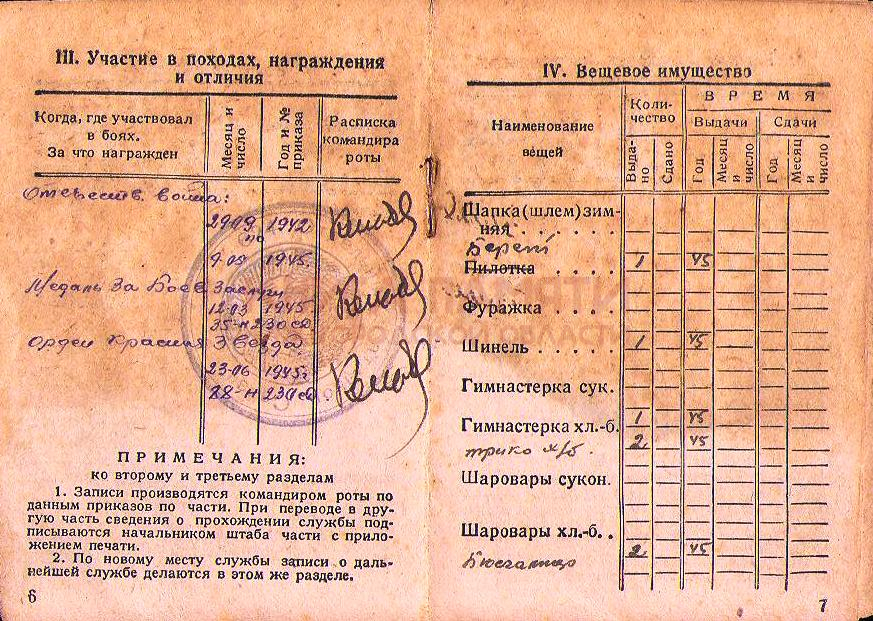 III. Участие в походах, награждения
и отличия
Когда, где участвовал
в боях.
За что награжден
Месяц и
число
Год и №
приказа
Расписка
командира
роты
Отечеств. война:
29.09 1942
по
9.05 1945.
Медаль За Боев Заслуги
12.03 1945
35-н 230 сд
Орден Красная Звезда
23.06 1945г
28-н 230 сд
ПРИМЕЧАНИЯ:
ко второму и третьему разделам
1. Записи производятся командиром роты по
данным приказов по части. При переводе в дру-
гую часть сведения о прохождении службы под-
писываются начальником штаба части с прило-
жением печати.
2. По новому месту службы записи о даль-
нейшей службе делаются в этом же разделе.
6
IV. Вещевое имущество
Наименование
вещей
Коли-
чество
ВРЕМЯ
Выдачи Сдачи
Выда-
но
Сдано
Год
Месяц
и
число
Год
Месяц
и
число
Шапка (шлем) зим-
няя . . . . . .
Берет
Пилотка . . . . 1 45
Фуражка . . . .
Шинель . . . . . 1 45
Гимнастерка сук.
Гимнастерка хл.-б. 1 45
трико х/б. 2 45
Шаровары сукон.
Шаровары хл.-б. .
2 45
Бюстгалтер
7